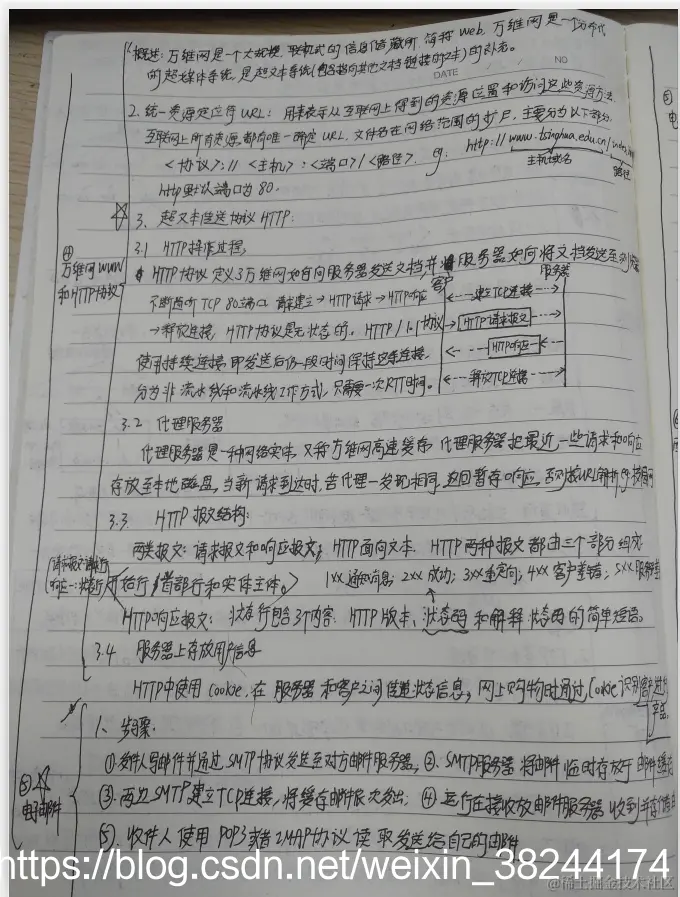 概述: 万维网是一个大规模、联机式的信息储藏所, 简称 Web. 万维网是一个分布式
的超媒体系统, 是超文本系统(包含指向其他文档链接的文本)的扩充。
DATE
NO
2. 统一资源定位符 URL: 用来表示从互联网上得到的资源位置和访问这些资源方法.
互联网上所有资源都有唯一确定 URL. 文件名在网络范围的扩展, 主要分为以下部分
<协议>:// <主机> : <端口> / <路径>. eg: http://www.tsinghua.edu.cn/
主机域名
路径
http默认端口为 80.
3、超文本传送协议 HTTP:
④
万维网WWW
和HTTP协议
3.1 HTTP操作过程
HTTP 协议定义了万维网如何向服务器发送文档, 并 服务器如何将文档发送至
客户
服务器
不断监听 TCP 80端口 请求建立→HTTP请求→HTTP响应
建立TCP连接
→释放连接, HTTP协议是无状态的. HTTP/1.1协议
HTTP请求报文
使用持续连接, 即发送后仍一段时间保持这条连接.
HTTP响应
分为非流水线和流水线工作方式, 只需要一次RTT时间。
释放TCP连接
3.2 代理服务器
代理服务器是一种网络实体, 又称万维网高速缓存. 代理服务器把最近一些请求和响应
存放至本地磁盘, 当新请求到达时, 若代理一发现相同, 返回暂存响应, 否则按URL
3.3 HTTP报文结构:
两类报文: 请求报文和响应报文; HTTP面向文本. HTTP两种报文都由三个部分组成
开始行, 首部行和实体主体。> 1xx 通知消息; 2xx 成功; 3xx 重定向; 4xx 客户差错; 5xx 服务差
HTTP响应报文: 状态行包含3个内容: HTTP版本、状态码 和解释状态码的简单短语。
3.4 服务器上存放用户信息
HTTP中使用 cookie, 在 服务器和客户之间传递状态信息; 网上购物时通过Cookie识别
⑤
电子邮件
1、步骤:
①发件人写邮件并通过 SMTP 协议发送至对方邮件服务器, ②. SMTP服务器将邮件临时存放于邮件缓存
③. 两边SMTP建立TCP连接, 将缓存邮件依次发出; ④ 运行在接收放邮件服务器 收到并存储
⑤. 收件人使用 POP3 或者 IMAP协议读取发送给自己的邮件
https://blog.csdn.net/weixin_38244174
@稀土掘金技术社区